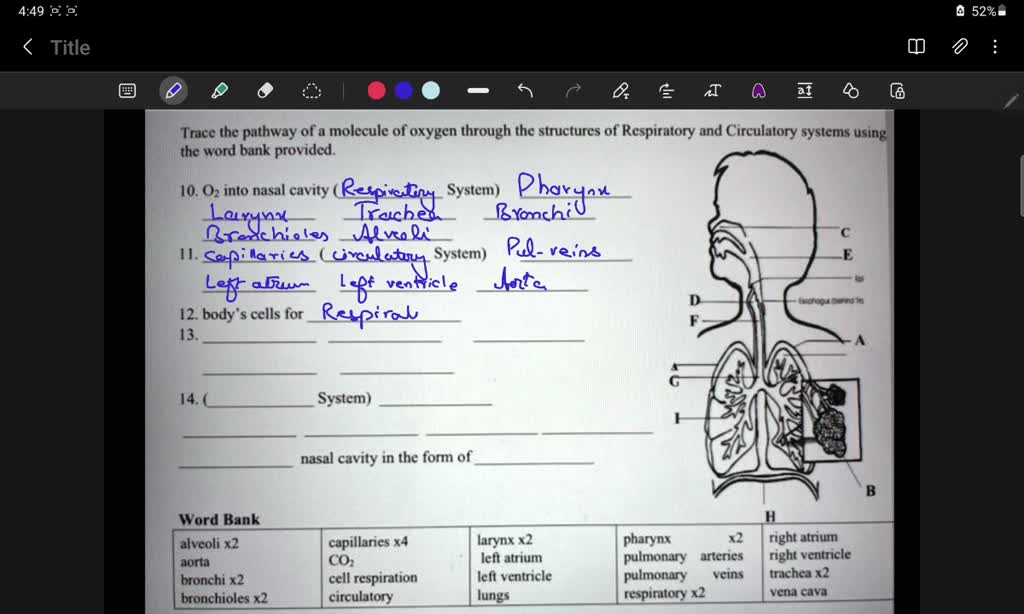 4:49 52%
Title
Trace the pathway of a molecule of oxygen through the structures of Respiratory and Circulatory systems using
the word bank provided.
10. O₂ into nasal cavity (Respiratory System) Pharynx
Larynx Trachea Bronchi
Bronchioles Alveoli
11. capillaries (circulatory System) Pul-veins
Left atrium Left ventricle Aorta
12. body's cells for Respirat
13.
14. ( System)
nasal cavity in the form of
C
E
D
F
A
A
G
I
B
H
Word Bank
alveoli x2 capillaries x4 larynx x2 pharynx x2 right atrium
aorta CO₂ left atrium pulmonary arteries right ventricle
bronchi x2 cell respiration left ventricle pulmonary veins trachea x2
bronchioles x2 circulatory lungs respiratory x2 vena cava